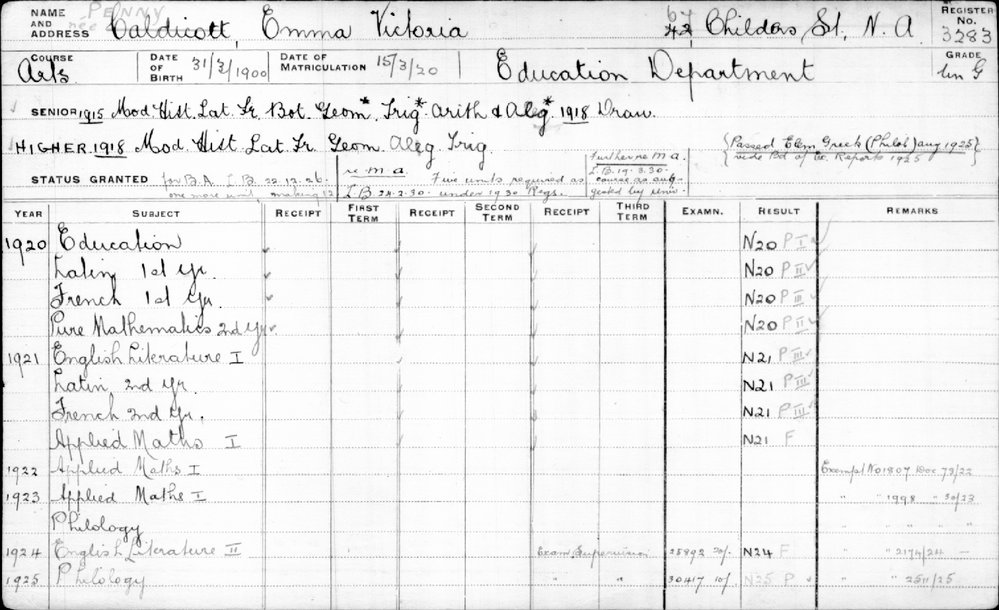 NAME AND ADDRESS née PENNY Caldicott, Emma Victoria 67 42 Childers St, N. A REGISTER No. 3283
COURSE Arts DATE OF BIRTH 31/3/1900 DATE OF MATRICULATION 15/3/20 Education Department GRADE
SENIOR 1915 Mod Hist. Lat. Fr. Bot. Geom.* Trig* Arith & Alg.* 1918 Draw.
HIGHER 1918 Mod Hist Lat. Fr. Geom. Alg Trig. {Passed Elem Greek (Philol) aug 1925 vide Bd of Ex. Reports 1925}
STATUS GRANTED for B.A. I.B. 22.12.26. one more unit making 12
re M.A. I.B 24.2.30. Five units required as under 1930 Regs.
further re M.A. I.B. 19.3.30. course as suggested by univ.
YEAR SUBJECT RECEIPT FIRST TERM RECEIPT SECOND TERM RECEIPT THIRD TERM EXAMN. RESULT REMARKS
1920 Education N20 P I
Latin 1st Yr. N20 P II
French 1st Yr. N20 P III
Pure Mathematics 2nd Yr N20 P II
1921 English Literature I N21 P III
Latin 2nd Yr. N21 P III
French 2nd Yr. N21 P III
Applied Maths I N21 F
1922 Applied Maths I Exempt No 1807 Doc 79/22
1923 Applied Maths I " " 1998 " 30/23
Philology " " " "
1924 English Literature II Exam Supervision 25892 20/- N24 F " " 2174/24 —
1925 Philology " " 30417 10/- N25 P " " 2511/25